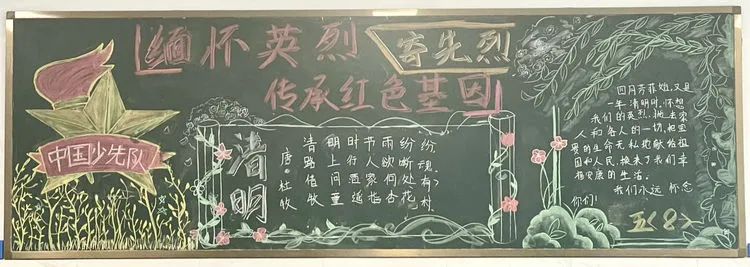 缅怀英烈
寄先烈
传承红色基因
中国少先队
清明
唐·杜牧
清明时节雨纷纷
路上行人欲断魂,
借问酒家何处有?
牧童遥指杏花村
四月芳菲始,又是
一年清明时,怀想
我们的英烈,抛去家
人和各人的一切,把宝
贵的生命无私贡献给祖
国和人民,换来了我们幸
福安康的生活。
我们永远怀念
你们!
五(8)